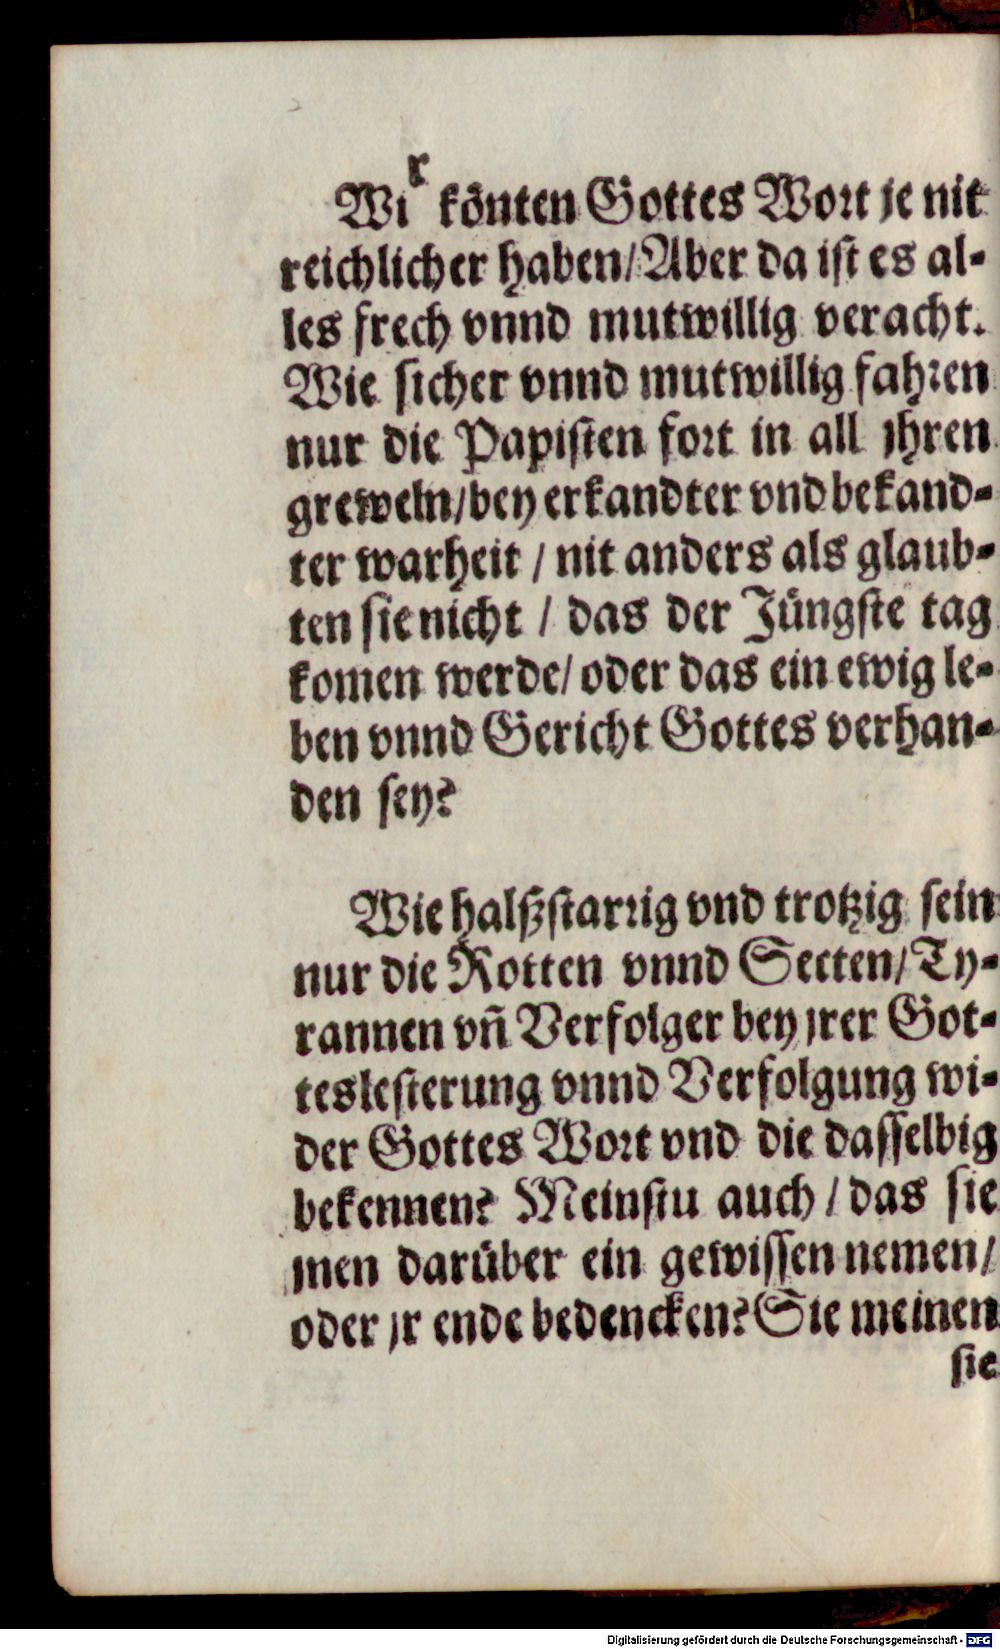 Wir könten Gottes Wort je nit
reichlicher haben/ Aber da ist es al-
les frech vnnd mutwillig veracht.
Wie sicher vnnd mutwillig fahren
nur die Papisten fort in all jhren
greweln/ bey erkandter vnd bekand-
ter warheit / nit anders als glaub-
ten sie nicht / das der Jüngste tag
komen werde/ oder das ein ewig le-
ben vnnd Gericht Gottes verhan-
den sey?
Wie halßstarrig vnd trotzig sein
nur die Rotten vnnd Secten/ Ty-
rannen vñ Verfolger bey jrer Got-
teslesterung vnnd Verfolgung wi-
der Gottes Wort vnd die dasselbig
bekennen? Meinstu auch / das sie
jnen darüber ein gewissen nemen/
oder jr ende bedencken? Sie meinen
sie
Digitalisierung gefördert durch die Deutsche Forschungsgemeinschaft - DFG